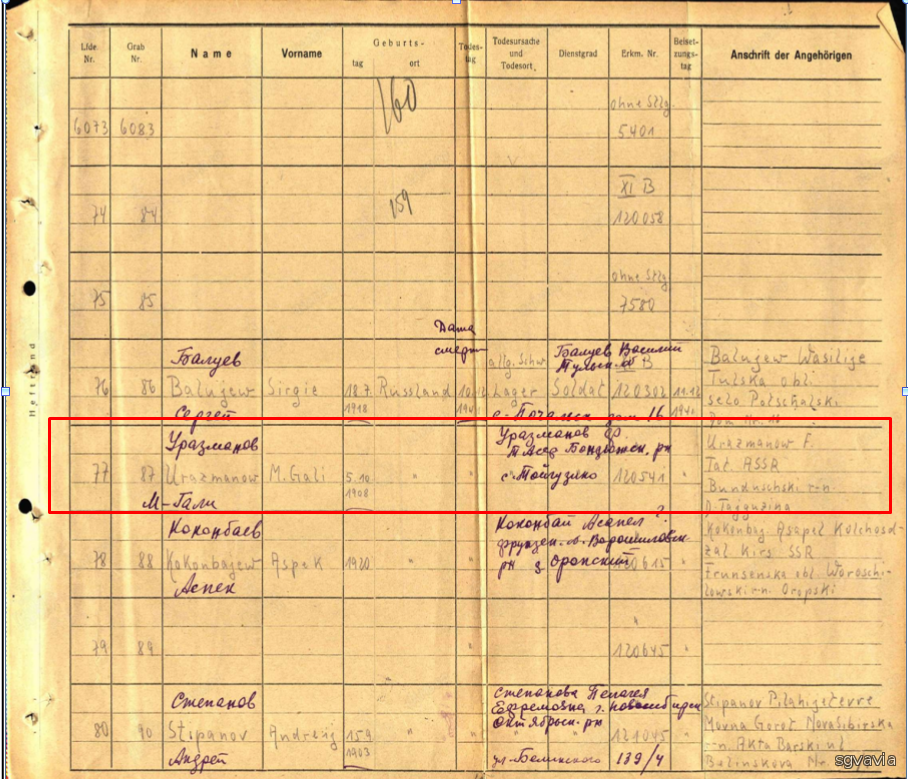 Lfde Nr.
Grab Nr.
Name
Vorname
Geburts-
tag
ort
Todes-
tag
Todesursache und Todesort
Dienstgrad
Erkm. Nr.
Beiset-
zungs-
tag
Anschrift der Angehörigen
160
ohne Stlg.
6073 6083 5401
159
XI B
74 84 120058
ohne Stlg.
75 85 7580
Дата
смерти
Балуев Балуев Василий Balujew Wasilije
allg. Schw. Тульск. B Tulska obl.
76 86 Balujew Sirgie 18.7. Russland 10.12 Lager Soldat 120302 11.12 selo Potschalski
Сергей 1918 1941 дом 16 1941
Уразманов Уразманов Ф. Urazmanow F.
ТАССР Бондюжск. рн Tat. ASSR
77 87 Urazmanow M.Gali 5.10 " " с. Тойгузино 120541 " Bunduschski r-n.
М-Гали 1908 D. Tajguzina
Коконбаев Коконбай Асапел Kokonbay Asapel Kolchosd-
фрунзен. Ворошиловск zal Kirs SSR
78 88 Kokonbajew Aspek 1920 " " рн Оропский 120615 " Frunsenska obl. Waroschi-
Аспек lowski r-n. Oropski
"
79 89 " 120645 "
"
Степанов Степанова Пелагея Stipanov
Ефремовна г. Новосибирск Gorot Novasibirska
80 90 Stipanov Andreij 15.9 Октябрьск. рн 121045 r-n. Akta Barski ul.
Андрей 1903 ул. Белинского 139/4 Balinskova Nr.
Heftrand
sgvavia